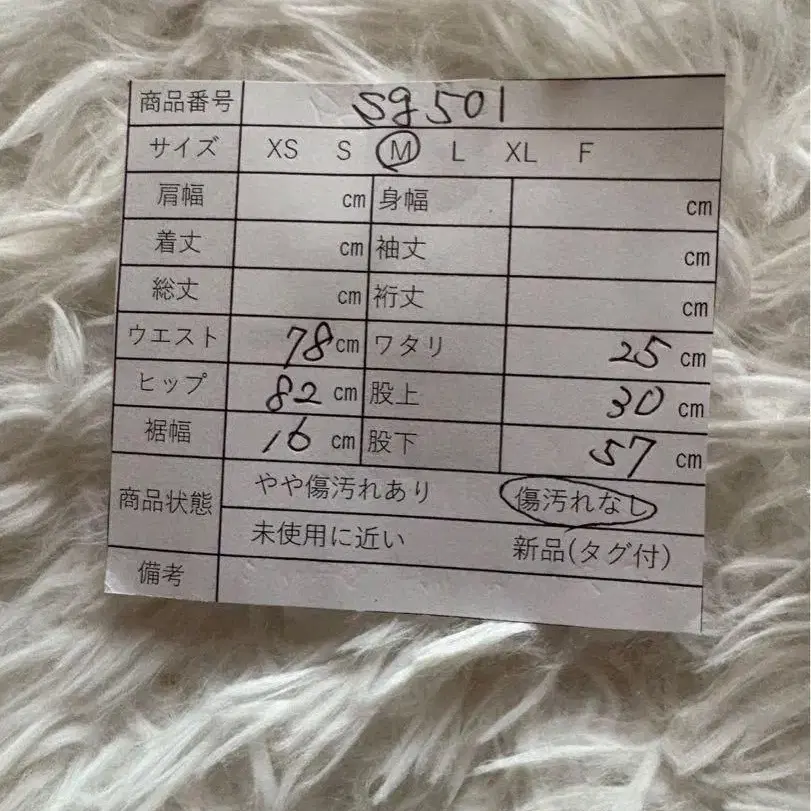 商品番号 sg501
サイズ XS S M L XL F
肩幅 cm 身幅 cm
着丈 cm 袖丈 cm
総丈 cm 裄丈 cm
ウエスト 78cm ワタリ 25 cm
ヒップ 82 cm 股上 30 cm
裾幅 16 cm 股下 57 cm
商品状態 やや傷汚れあり 傷汚れなし
未使用に近い 新品(タグ付)
備考